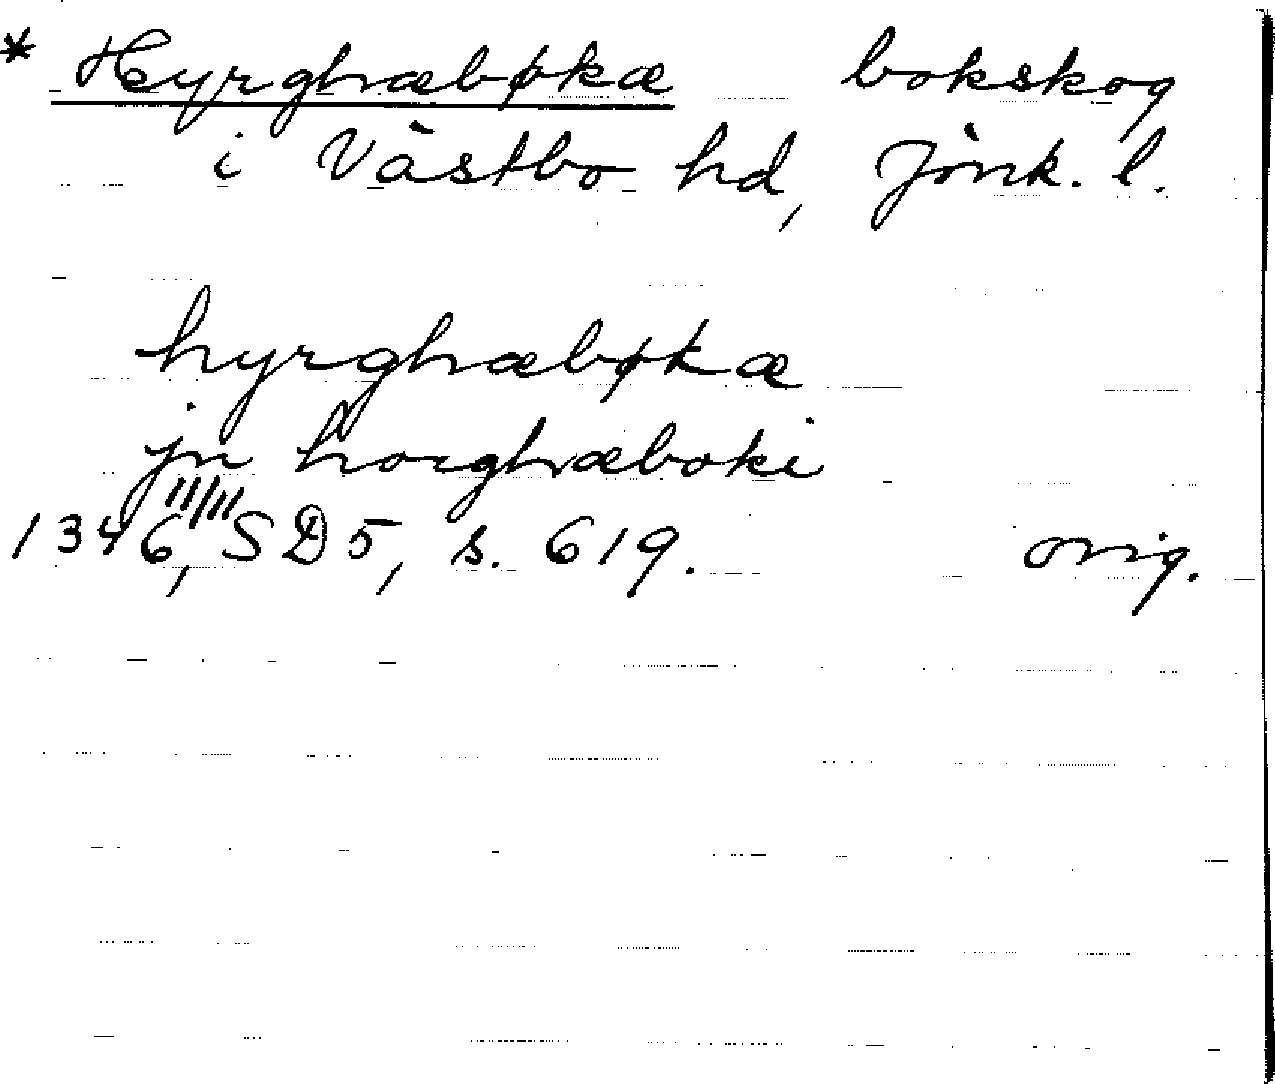 * Hyrghæbøkæ bokskog
i Västbo hd, Jönk. l.
hyrghæbøkæ
jn horghæboki
1346 11/11, SD 5, s. 619. orig.